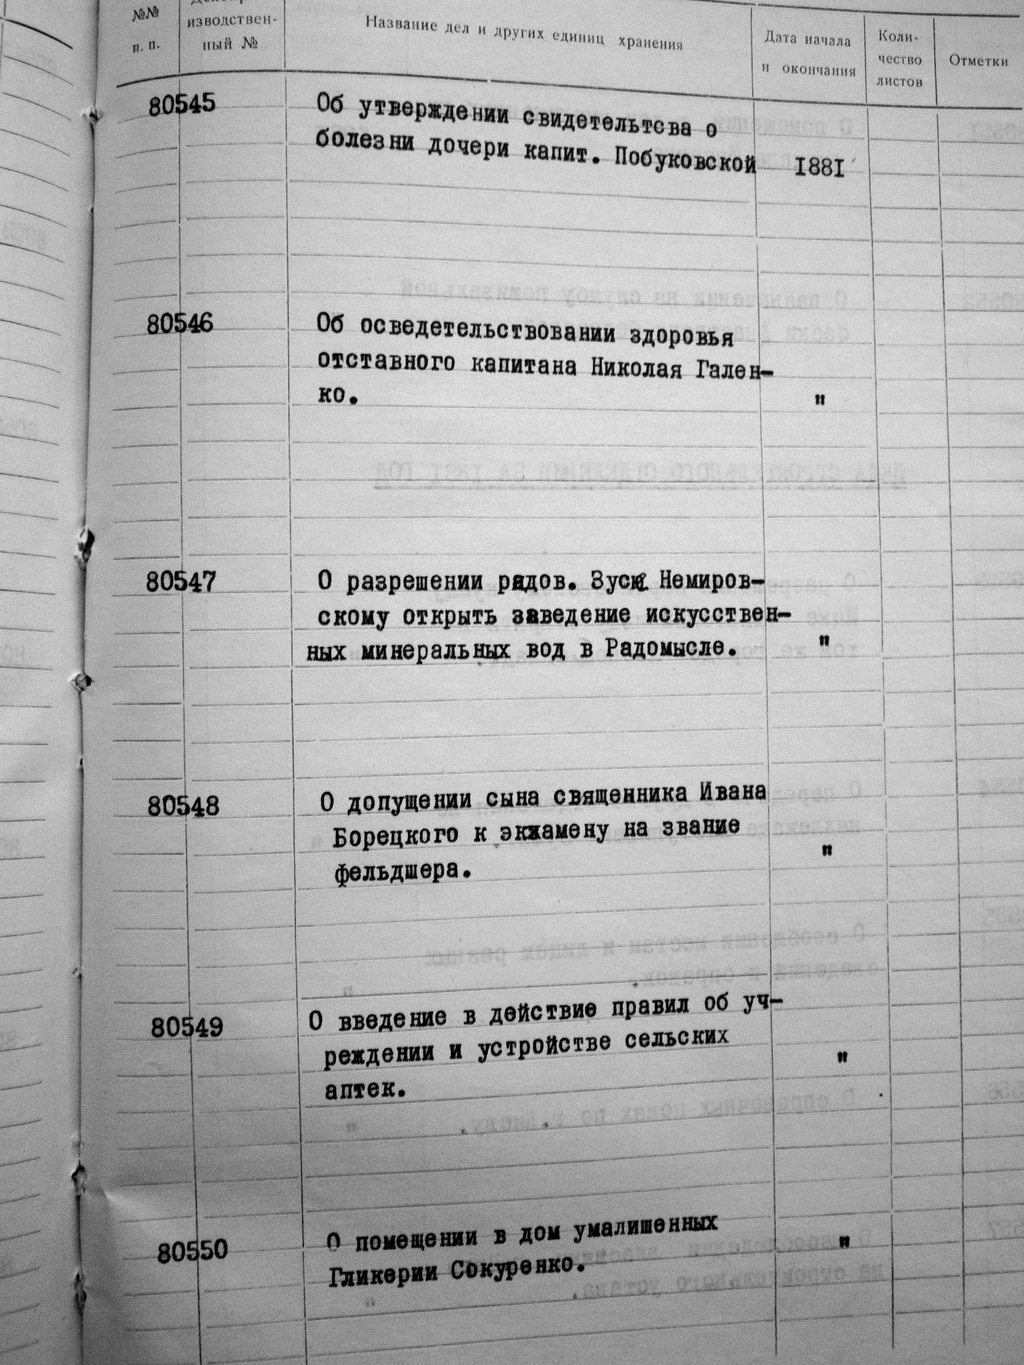 №№
п. п.
изводствен-
ный №
Название дел и других единиц хранения
Дата начала
и окончания
Коли-
чество
листов
Отметки
80545
Об утверждении свидетельтсва о
болезни дочери капит. Побуковской
I88I
80546
Об осведетельствовании здоровья
отставного капитана Николая Гален-
ко.
"
80547
О разрешении рядов. Зуси Немиров-
скому открыть заведение искусствен-
ных минеральных вод в Радомысле.
"
80548
О допущении сына священника Ивана
Борецкого к экзамену на звание
фельдшера.
"
80549
О введение в действие правил об уч-
реждении и устройстве сельских
аптек.
"
80550
О помещении в дом умалишенных
Гликерии Сокуренко.
"